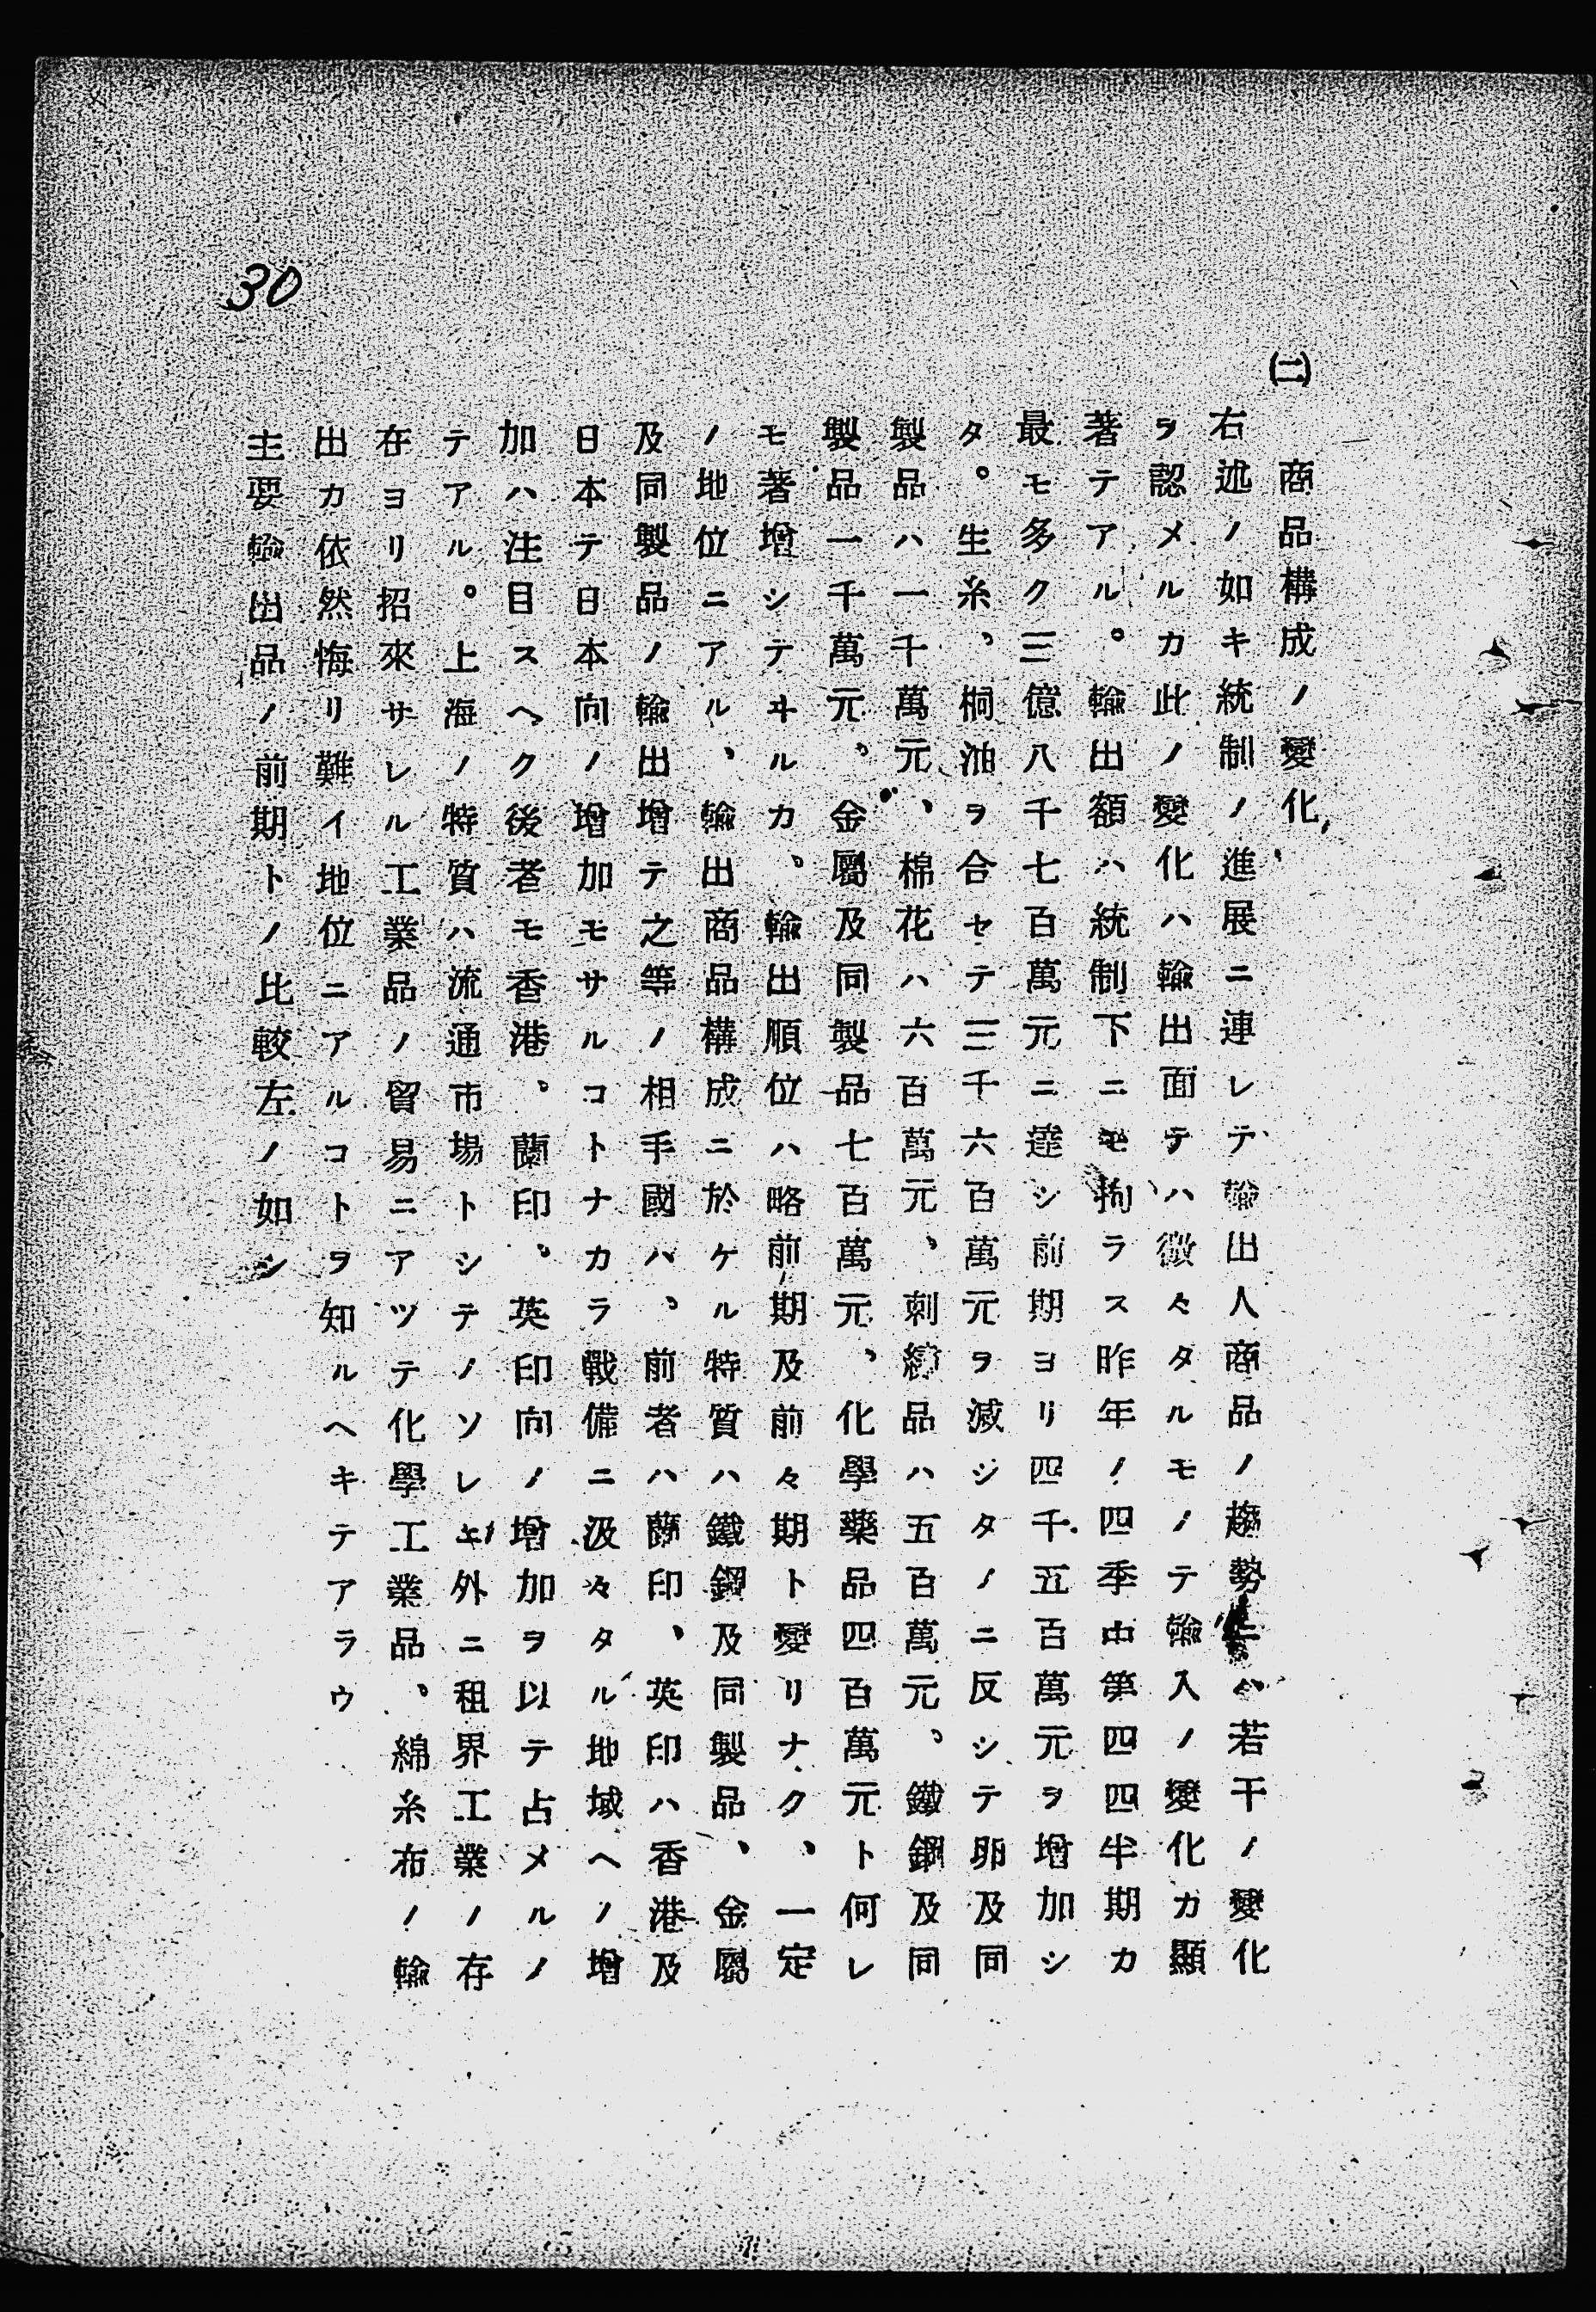 ㈡　商品構成ノ變化
右述ノ如キ統制ノ進展ニ連レテ輸出入商品ノ趨勢ニハ若干ノ變化
ヲ認メルカ此ノ變化ハ輸出面テハ微々タルモノテ輸入ノ變化カ顯
著テアル。輸出額ハ統制下ニモ拘ラス昨年ノ四季中第四四半期カ
最モ多ク三億八千七百萬元ニ達シ前期ヨリ四千五百萬元ヲ増加シ
タ。生糸、桐油ヲ合セテ三千六百萬元ヲ減ジタノニ反シテ卵及同
製品ハ一千萬元、棉花ハ六百萬元、刺繡品ハ五百萬元、鐵鋼及同
製品一千萬元、金屬及同製品七百萬元、化學藥品四百萬元ト何レ
モ著增シテヰルカ、輸出順位ハ略前期及前々期ト變リナク、一定
ノ地位ニアル、輸出商品構成ニ於ケル特質ハ鐵鋼及同製品、金屬
及同製品ノ輸出增テ之等ノ相手國ハ、前者ハ蘭印、英印ハ香港及
日本テ日本向ノ增加モサルコトナカラ戰備ニ汲々タル地域ヘノ增
加ハ注目スヘク後者モ香港、蘭印、英印向ノ增加ヲ以テ占メルノ
テアル。上海ノ特質ハ流通市場トシテノソレ以外ニ租界工業ノ存
在ヨリ招來サレル工業品ノ貿易ニアツテ化學工業品、綿糸布ノ輸
出カ依然悔リ難イ地位ニアルコトヲ知ルヘキテアラウ
主要輸出品ノ前期トノ比較左ノ如シ
30